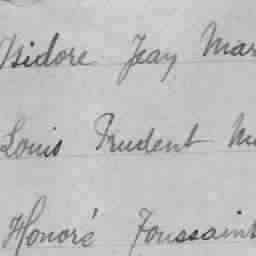 Isidore Jeay Mar
Louis Prudent Mu
Honoré Toussaint